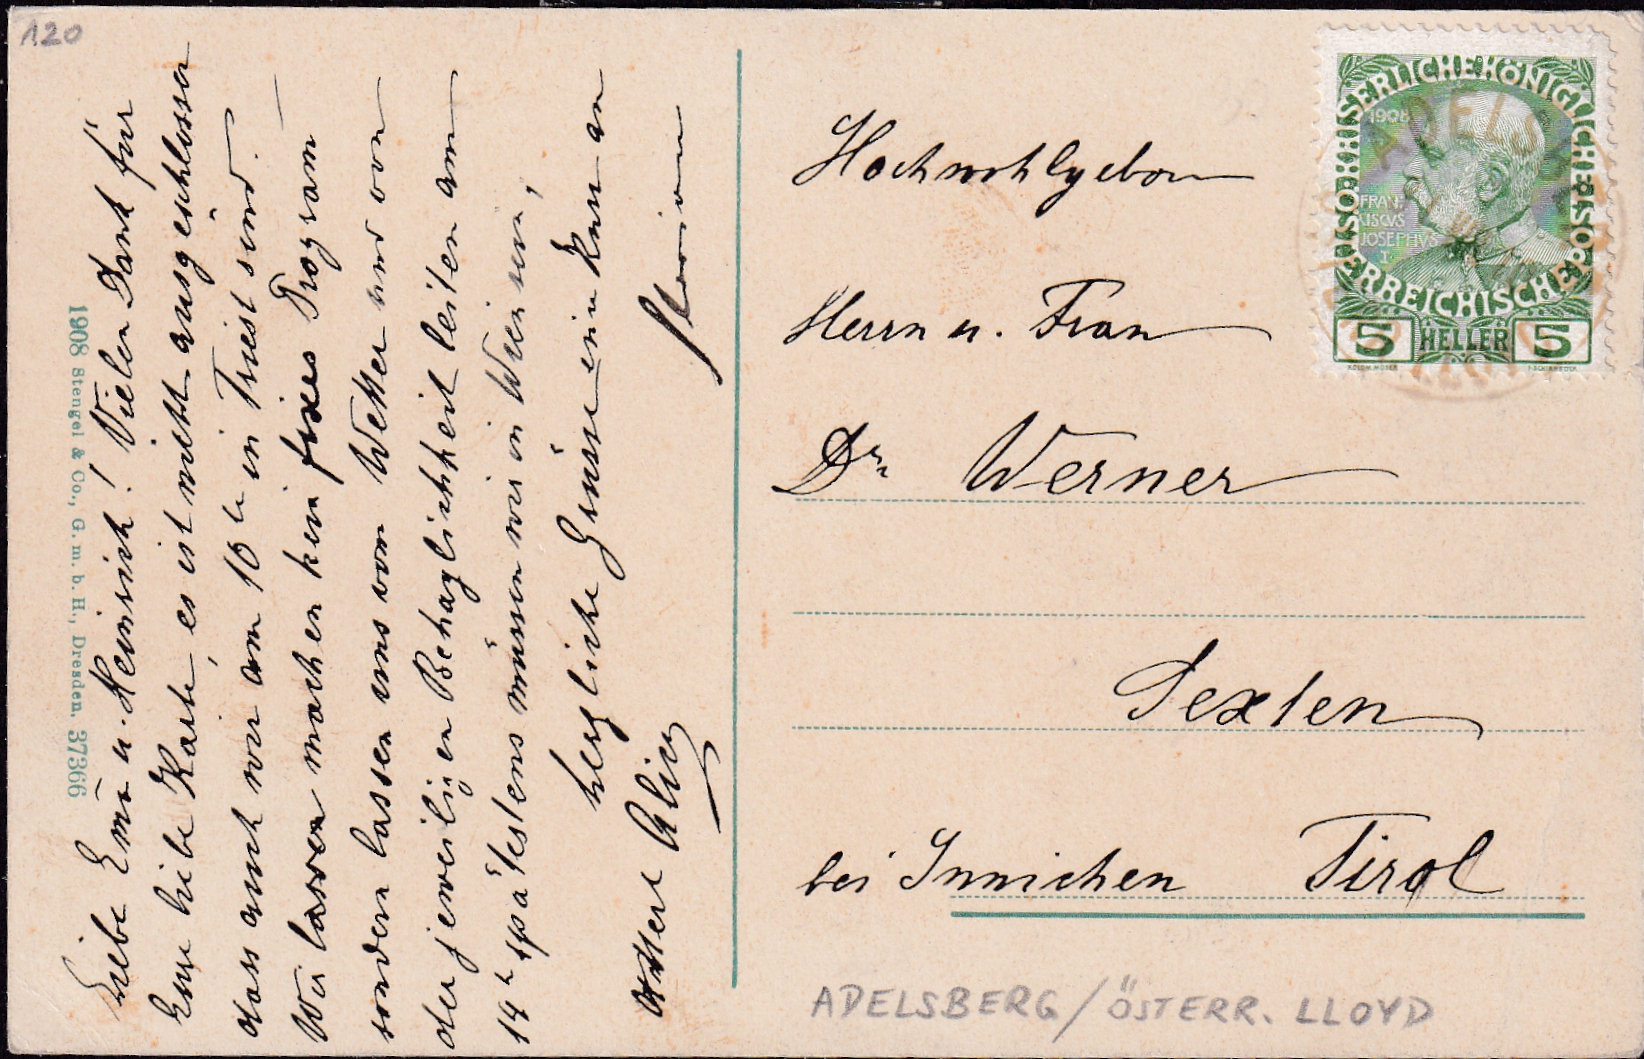 120
Liebe Ema u. Heinrich! Vielen Dank für
Eure liebe Karte, es ist nicht ausgeschlossen
dass auch wir am 10ten in Triest sind.
Wir lassen machen kein fixes Program
sondern lassen uns vom Wetter und von
der jeweiligen Behaglichkeit leiten am
14ten spätestens müssen wir in Wien sein,
herzliche Grüsse ein Kuss an
1908 Stengel & Co., G. m. b. H., Dresden. 37366
KAISERLICHE KÖNIGLICHE ÖSTERREICHISCHE POST
1908
FRAN
CISCVS
JOSEPHVS
I
5 HELLER 5
ADELSB
Hochwohlgeborn
Herrn u. Frau
Dr. Werner
Sexten
bei Innichen Tirol
ADELSBERG / ÖSTERR. LLOYD